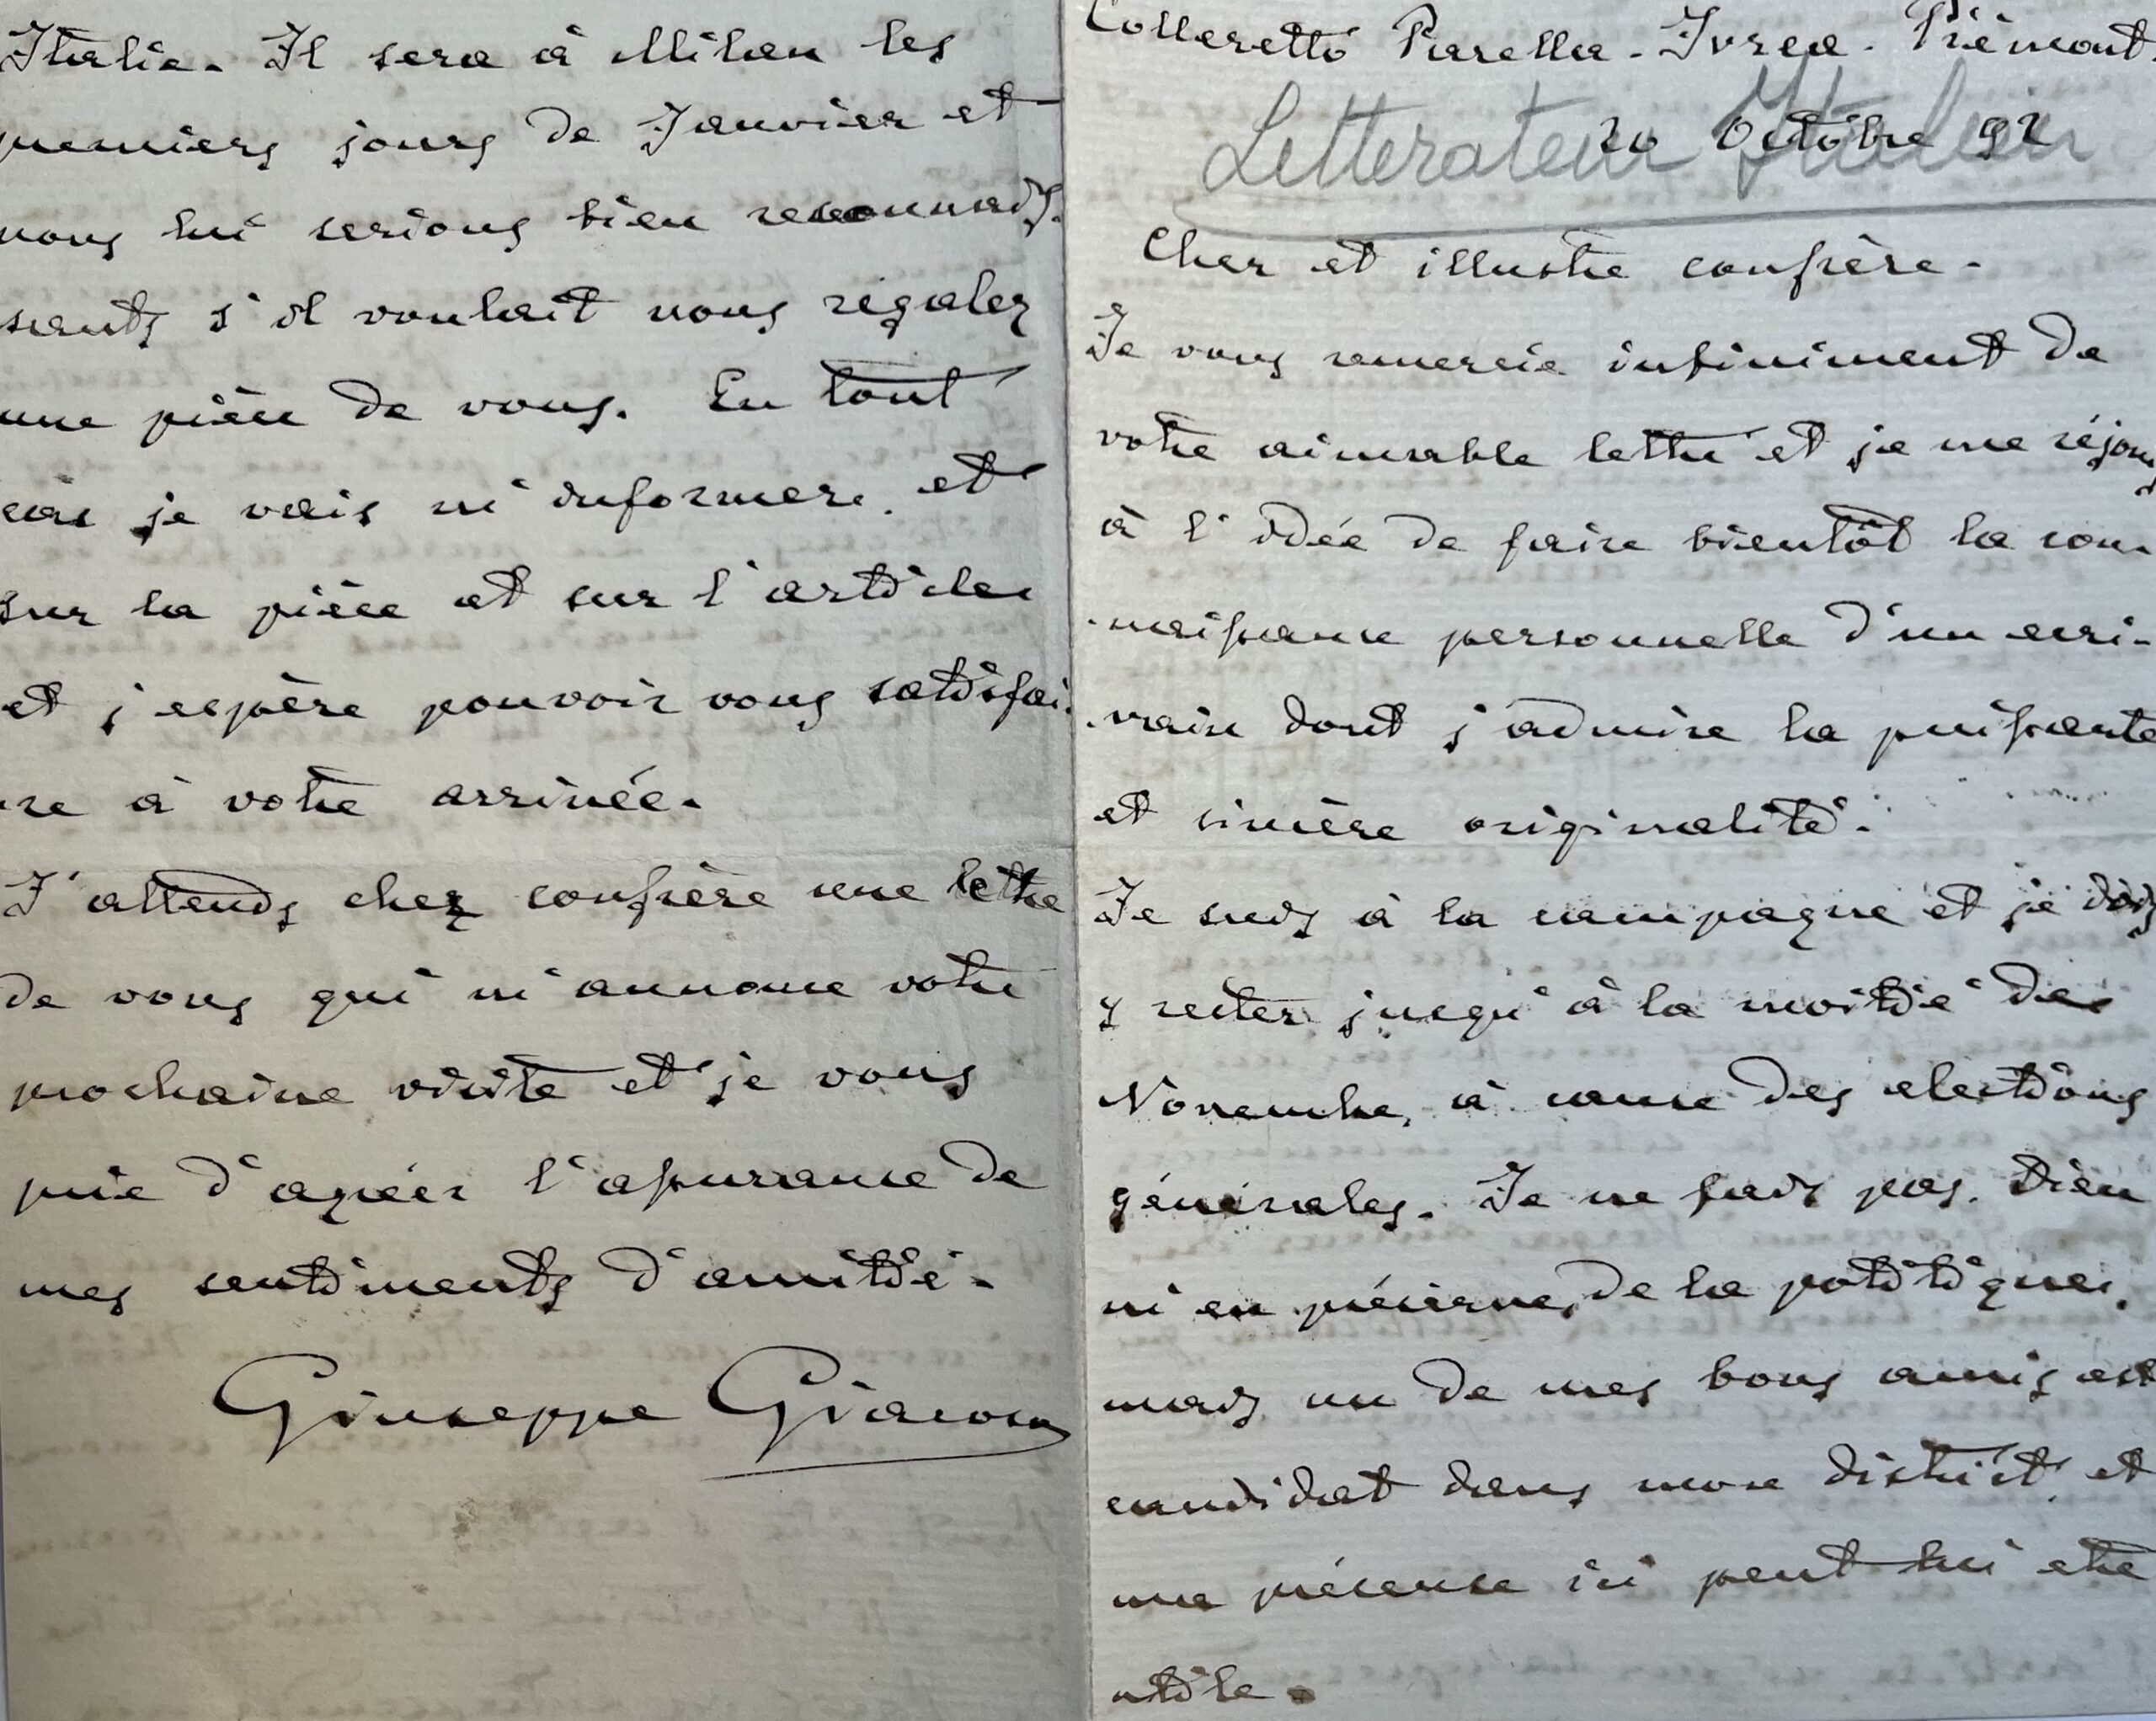 Colleretto Parella - Ivrea - Piémont.
Letterateur Italien
20 Octobre 92
Cher et illustre confrère -
Je vous remercie infiniment de
votre aimable lettre et je me réjouis
à l'idée de faire bientôt la con-
naissance personnelle d'un ecri-
vain dont j'admire la puissante
et sincère originalité.
Je suis à la campagne et je dois
y rester jusqu'à la moitié de
Novembre, à cause des elections
générales. Je ne fais pas, Dieu
m'en préserve, de la politique,
mais un de mes bons amis est
candidat dans mon district, et
ma présence ici peut lui etre
utile.
Italie. Il sera à Milan les
premiers jours de Janvier et
nous lui serions bien reconnais-
sants s'il voulait nous régaler
une pièce de vous. En tout
cas je vais m'informer, et
sur la pièce et sur l'article
et j'espère pouvoir vous satisfai-
re à votre arrivée.
J'attends cher confrère une lettre
de vous qui m'annonce votre
prochaine visite et je vous
prie d'agréer l'assurance de
mes sentiments d'amitié.
Giuseppe Giacosa